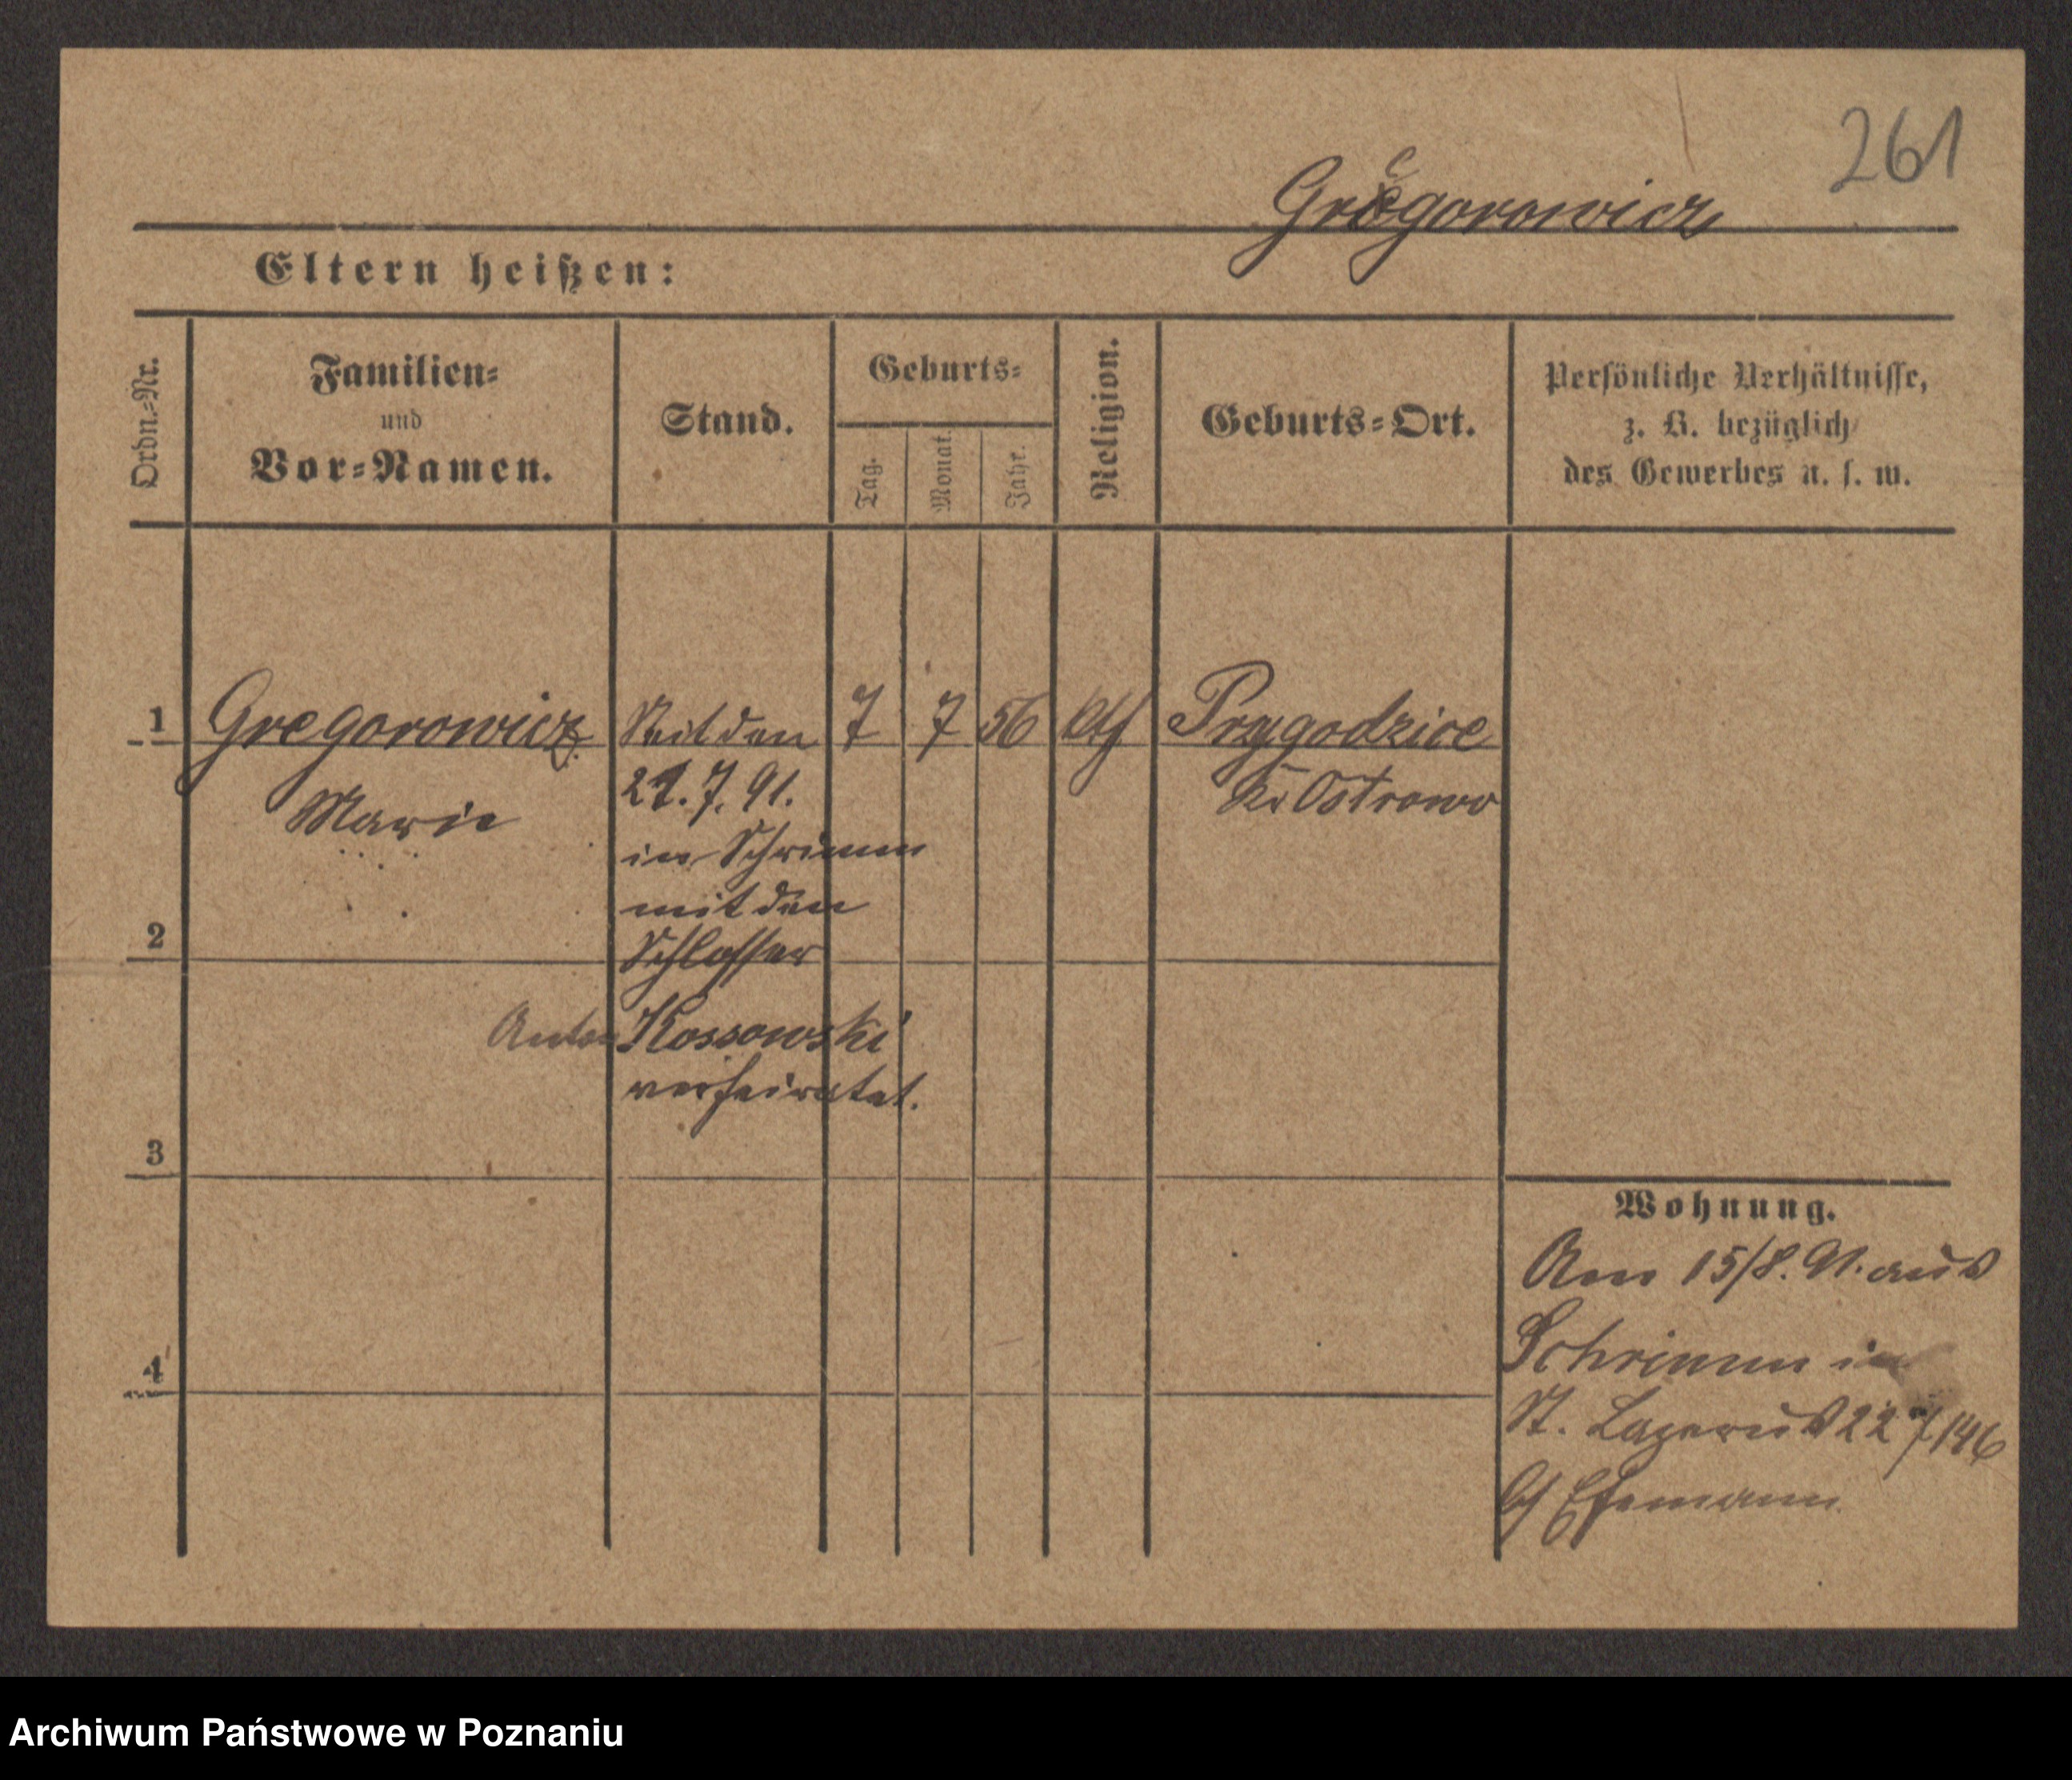 261
Gregorowicz
Eltern heißen:
Ordn.-Nr.
Familien-
und
Vor-Namen.
Stand.
Geburts-
Tag.
Monat.
Jahr.
Religion.
Geburts-Ort.
Persönliche Verhältnisse,
z. B. bezüglich
des Gewerbes u. s. w.
1 Gregorowicz Seit den 7 7 56 kth Przygodzice
Marie
21. 7. 91.
Kr Ostrowo
in Schrimm
mit den
2
Schlosser
Anton Kossowski
verheiratet.
3
4
Wohnung.
Am 15/8. 91. aus
Schrimm in
St. Lazarus 22 /146
b/ Ehemann
Archiwum Państwowe w Poznaniu